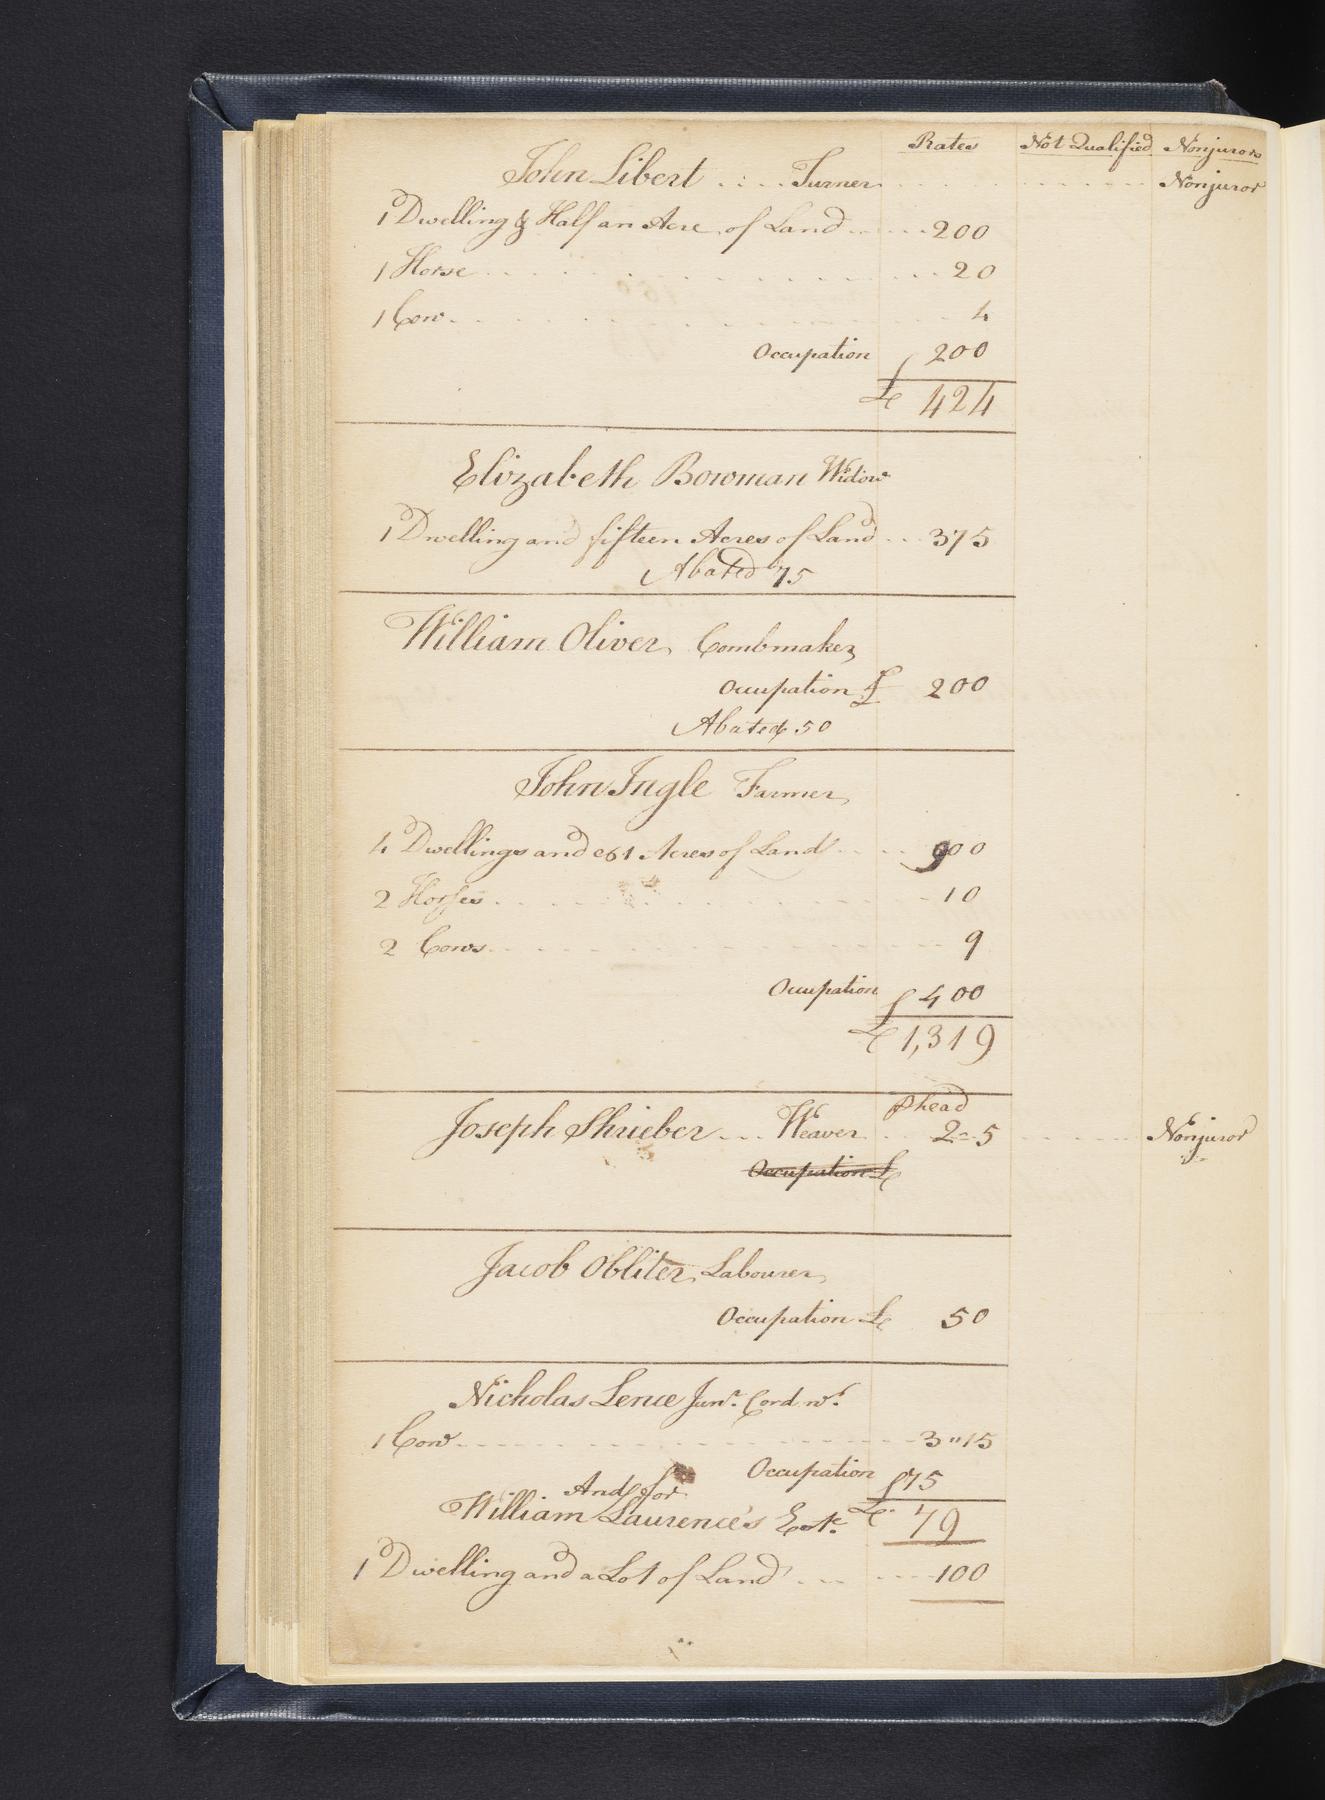 Rates Not Qualified Nonjurors
John Libert .... Turner ........ Nonjuror
1 Dwelling & Half an Acre of Land ..... 200
1 Horse ........ 20
1 Cow ........ 4
Occupation 200
£ 424
Elizabeth Bowman Widow
1 Dwelling and fifteen Acres of Land ... 375
Abated 75
William Oliver, Combmaker
Occupation £ 200
Abated 50
John Ingle Farmer,
4 Dwellings and 61 Acres of Land .... 900
2 Horses ........ 10
2 Cows ........ 9
Occupation 400
£ 1,319
Phead
Joseph Shrieber ... Weaver .. 2=5 ...... Nonjuror
Occupation £
Jacob Obliter, Labourer,
Occupation £ 50
Nicholas Lence Junr. Cord.wr.
1 Cow ........ 3"15
Occupation 75
And for
William Laurence's Este. £ 79
1 Dwelling and a Lot of Land ....... 100